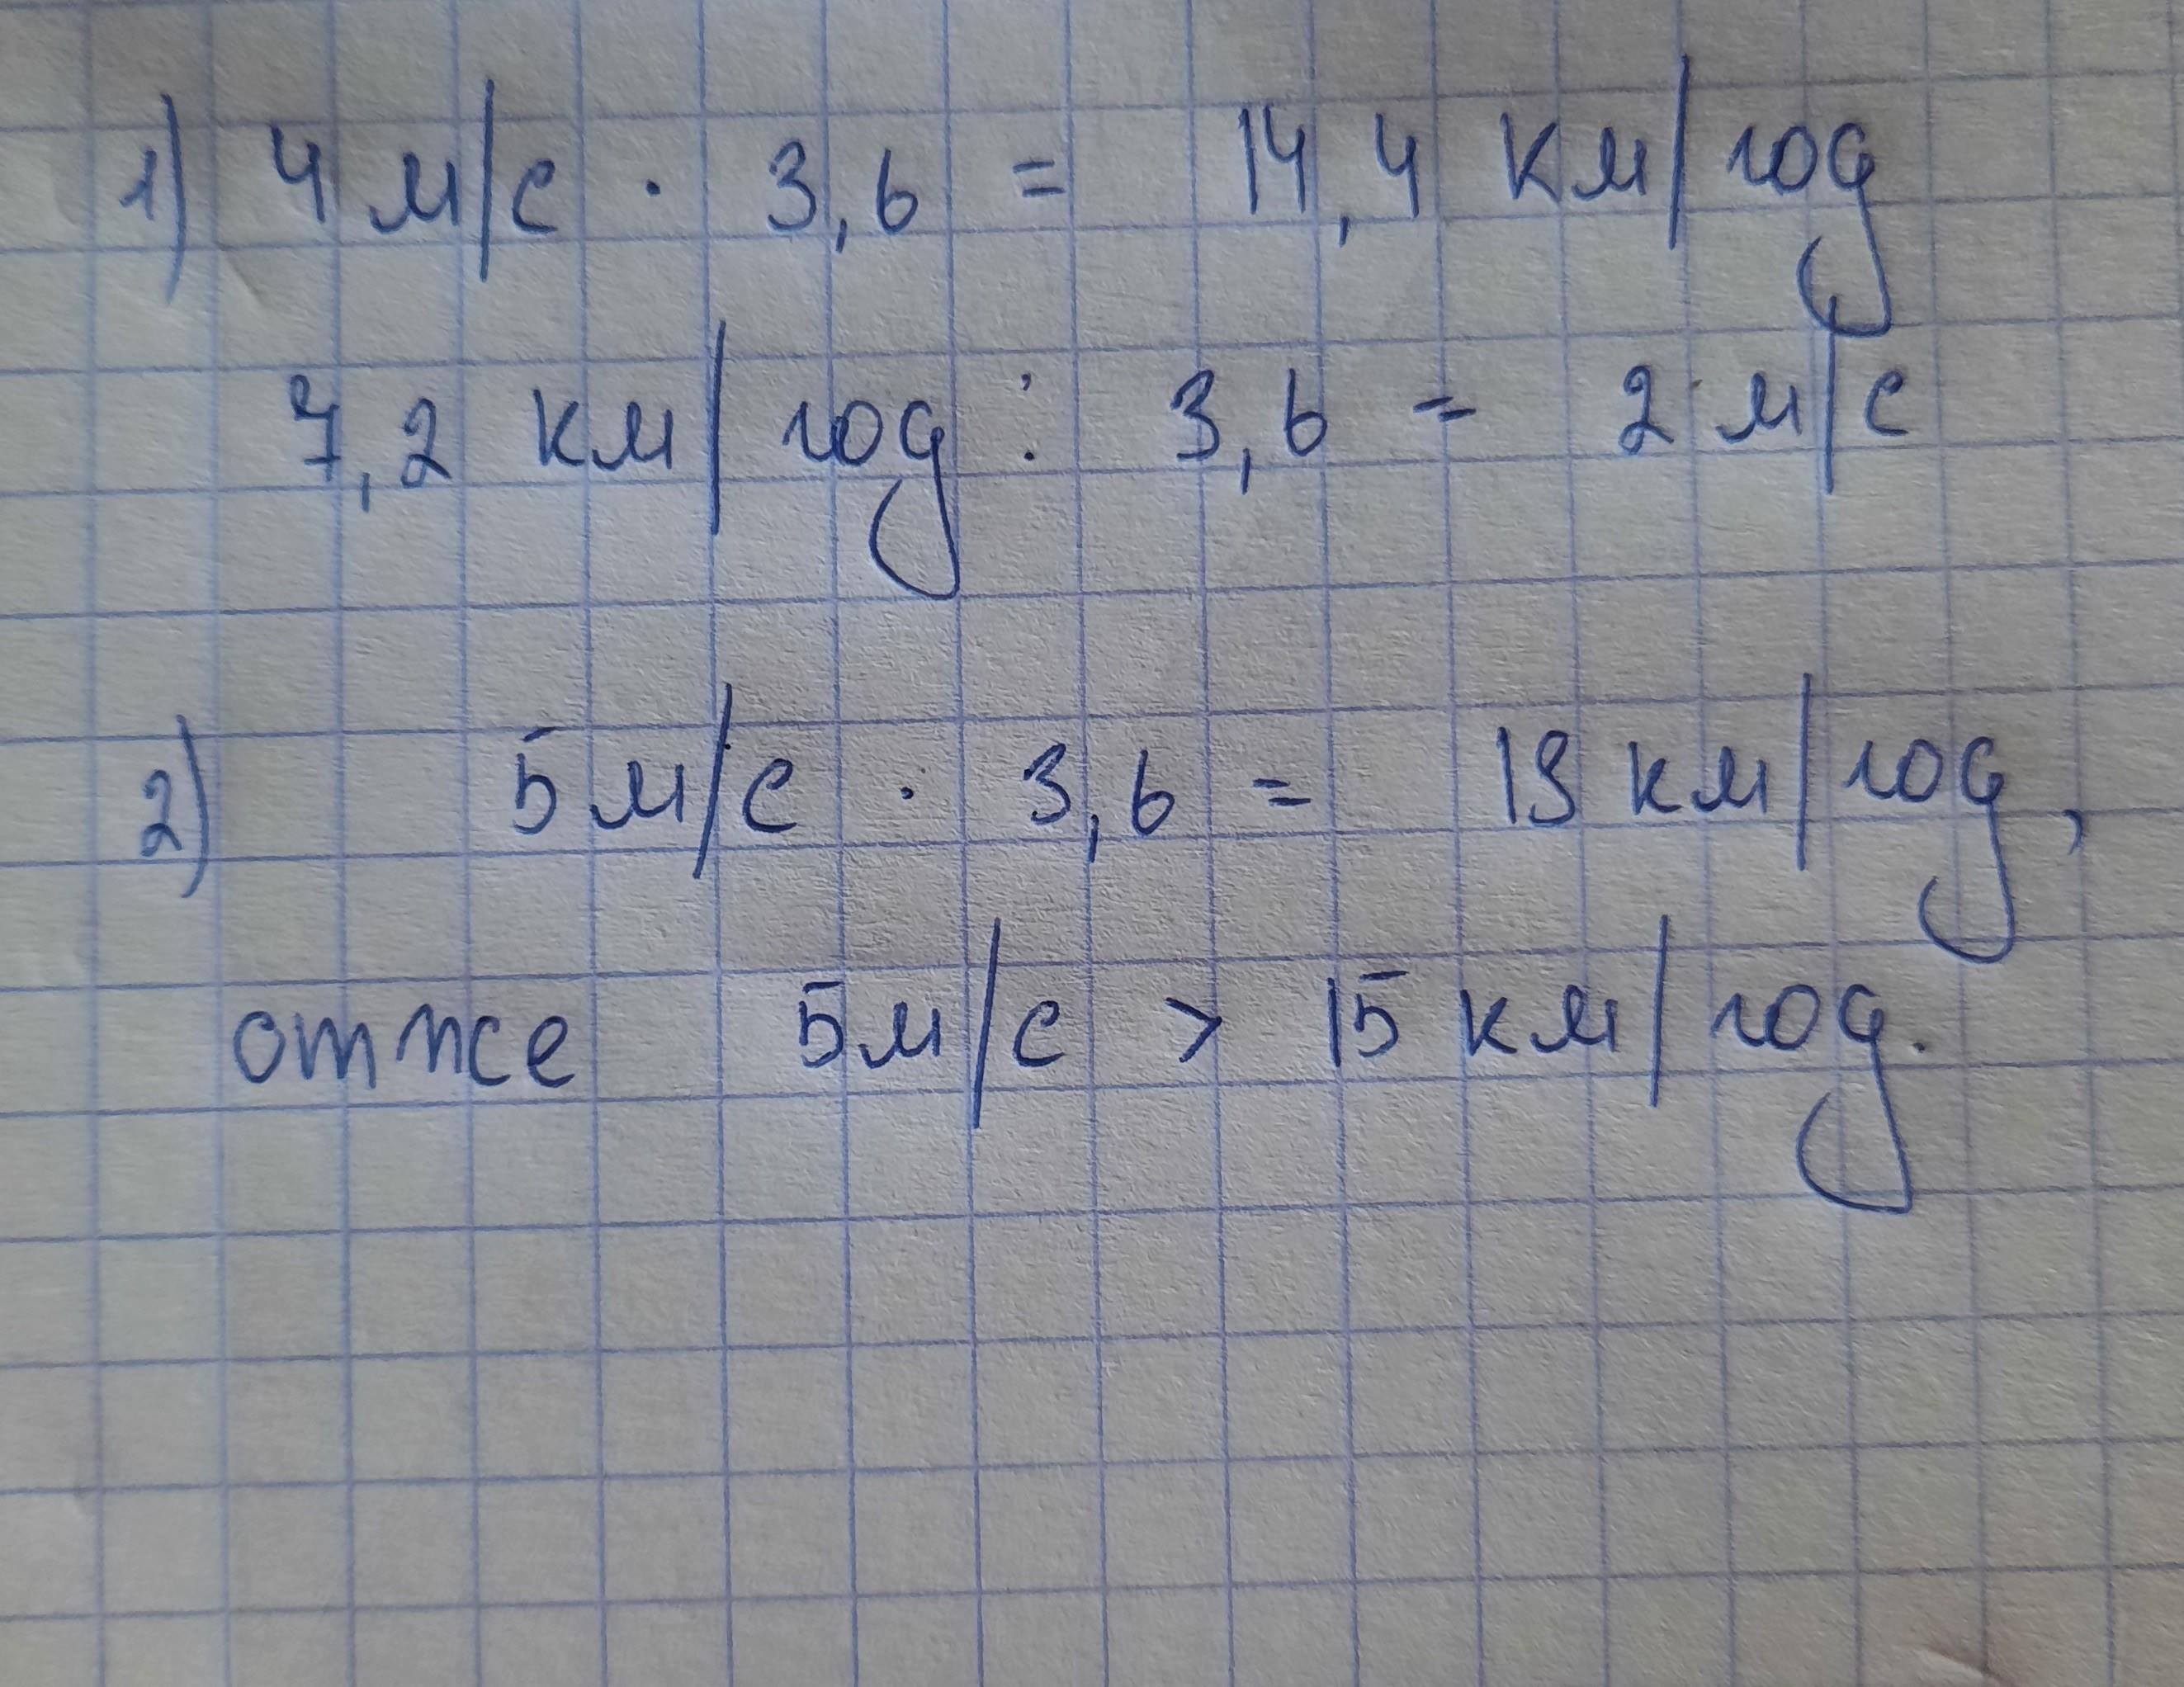 1) 4 м/с · 3,6 = 14,4 км/год
7,2 км/год : 3,6 = 2 м/с
2) 5 м/с · 3,6 = 18 км/год,
отже 5м/с > 15 км/год.